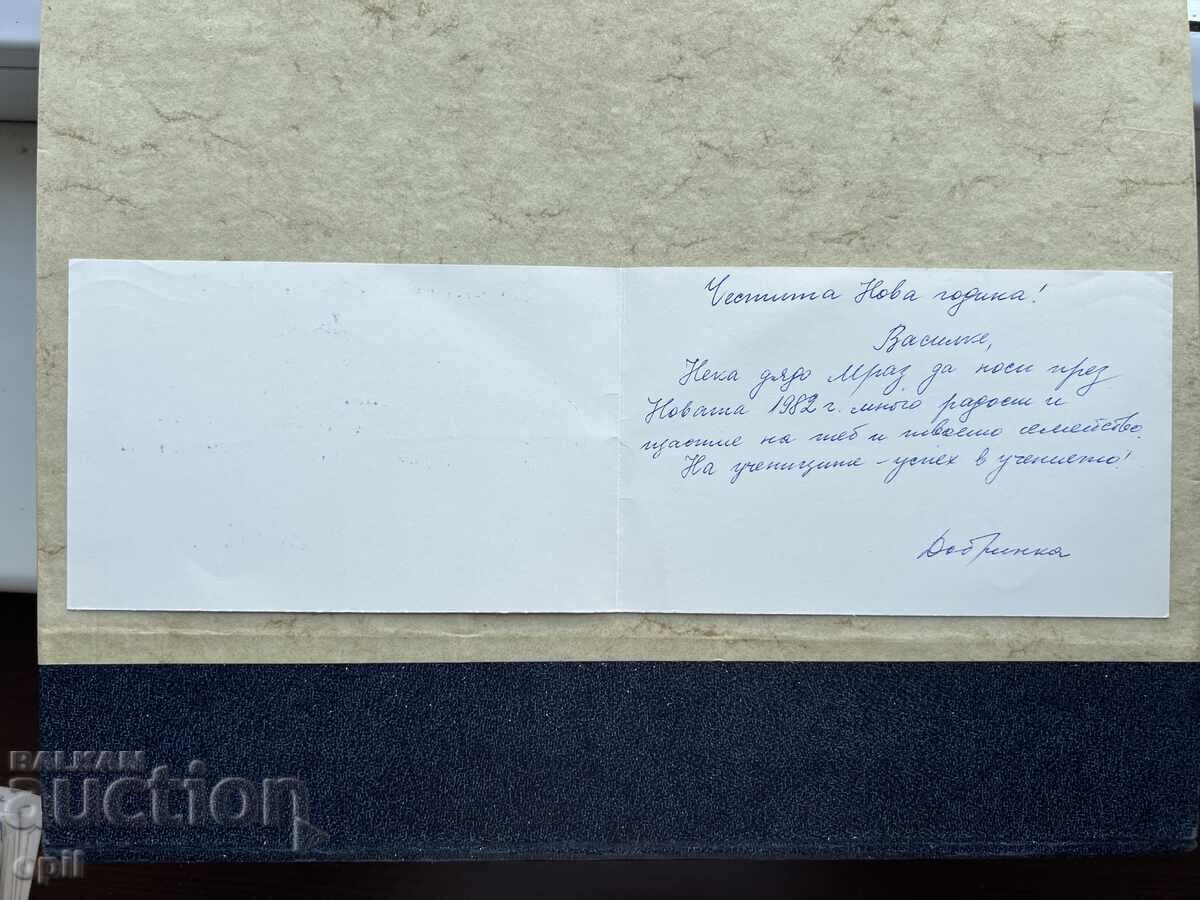 Честита Нова година!
Василке,
Нека дядо Мраз да носи през
Новата 1982 г. много радост и
щастие на теб и твоето семейство.
На учениците - успех в учението!
Добринка
BALKAN
auction
opil